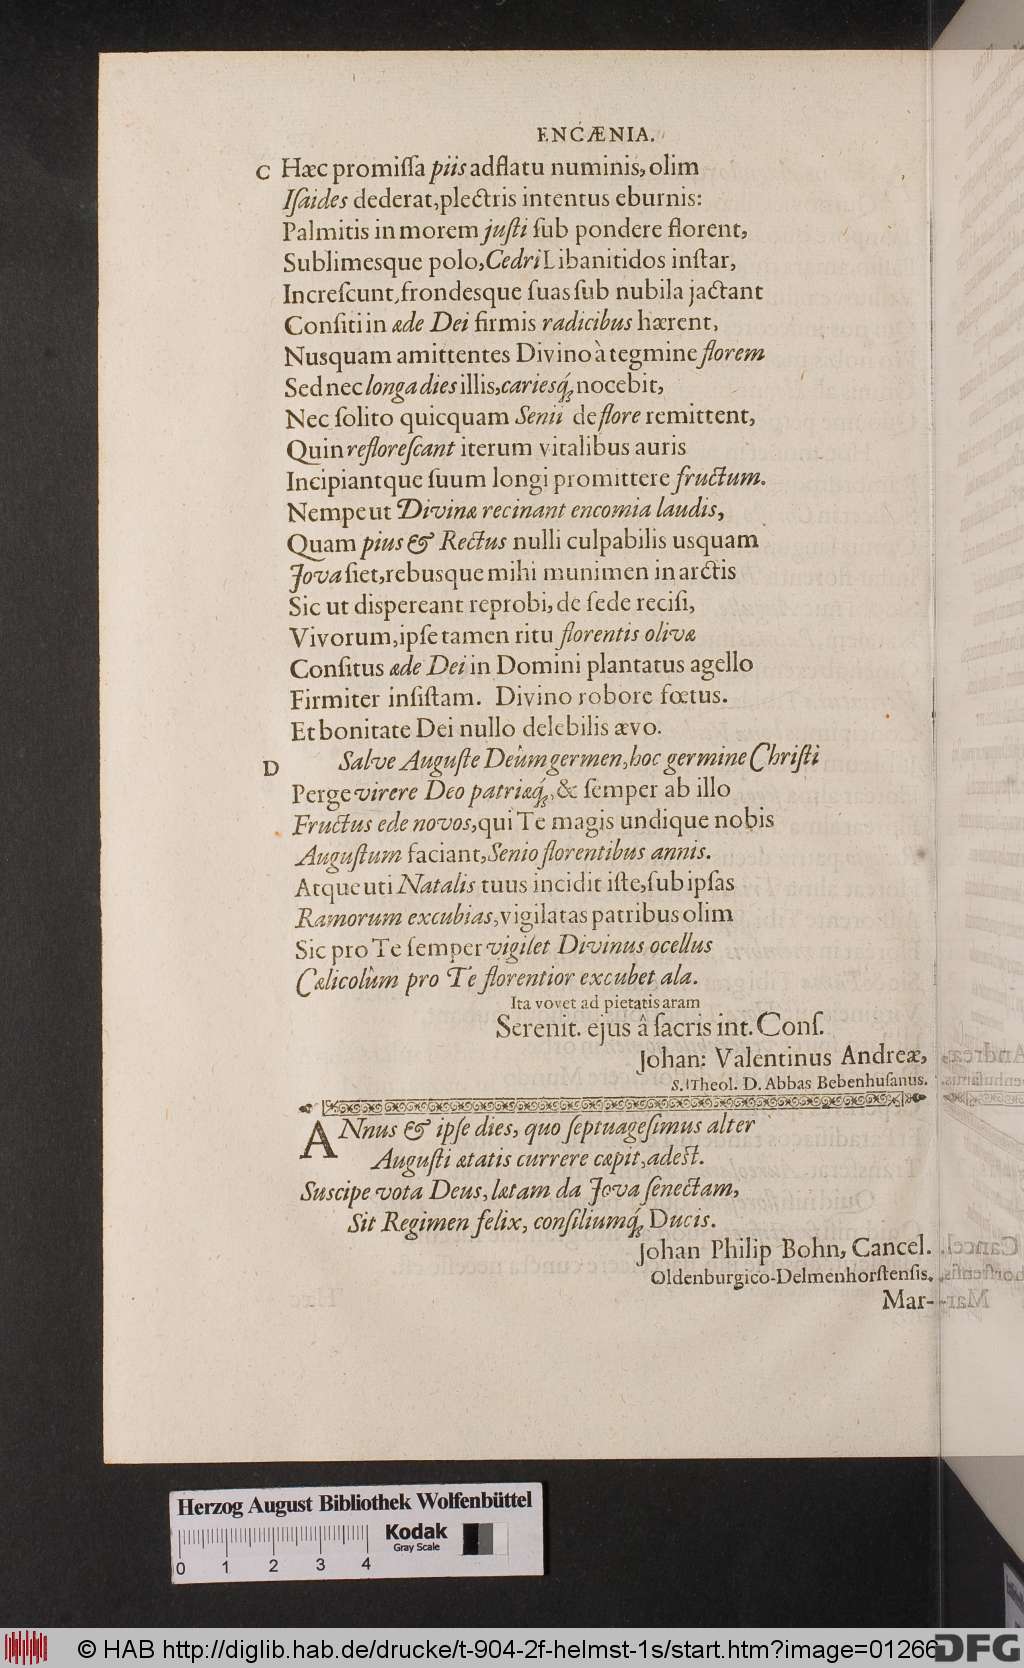 ENCÆNIA.
C Hæc promiſſa piis adflatu numinis, olim
Iſaides dederat, plectris intentus eburnis:
Palmitis in morem juſti ſub pondere florent,
Sublimesque polo, Cedri Libanitidos inſtar,
Increſcunt, frondesque ſuas ſub nubila jactant
Conſiti in æde Dei firmis radicibus hærent,
Nusquam amittentes Divino à tegmine florem
Sed nec longa dies illis, cariesq́ꝫ nocebit,
Nec ſolito quicquam Senii de flore remittent,
Quin refloreſcant iterum vitalibus auris
Incipiantque ſuum longi promittere fructum.
Nempe ut Divinæ recinant encomia laudis,
Quam pius & Rectus nulli culpabilis usquam
Jova ſiet, rebusque mihi munimen in arctis
Sic ut dispereant reprobi, de ſede reciſi,
Vivorum, ipſe tamen ritu florentis olivæ
Conſitus æde Dei in Domini plantatus agello
Firmiter inſiſtam. Divino robore fœtus.
Et bonitate Dei nullo delebilis ævo.
D Salve Auguſte Deûm germen, hoc germine Chriſti
Perge virere Deo patriæq́ꝫ, & ſemper ab illo
Fructus ede novos, qui Te magis undique nobis
Auguſtum faciant, Senio florentibus annis.
Atque uti Natalis tuus incidit iſte, ſub ipſas
Ramorum excubias, vigilatas patribus olim
Sic pro Te ſemper vigilet Divinus ocellus
Cælicolûm pro Te florentior excubet ala.
Ita vovet ad pietatis aram
Serenit. ejus â ſacris int. Conſ.
Johan: Valentinus Andreæ,
S. Theol. D. Abbas Bebenhuſanus.
ANnus & ipſe dies, quo ſeptuageſimus alter
Auguſti ætatis currere cæpit, adeſt.
Suscipe vota Deus, lætam da Jova ſenectam,
Sit Regimen felix, conſiliumq́ꝫ Ducis.
Johan Philip Bohn, Cancel.
Oldenburgico-Delmenhorſtenſis.
Mar-
Herzog August Bibliothek Wolfenbüttel
Kodak
Gray Scale
0 1 2 3 4
© HAB http://diglib.hab.de/drucke/t-904-2f-helmst-1s/start.htm?image=01266
DFG